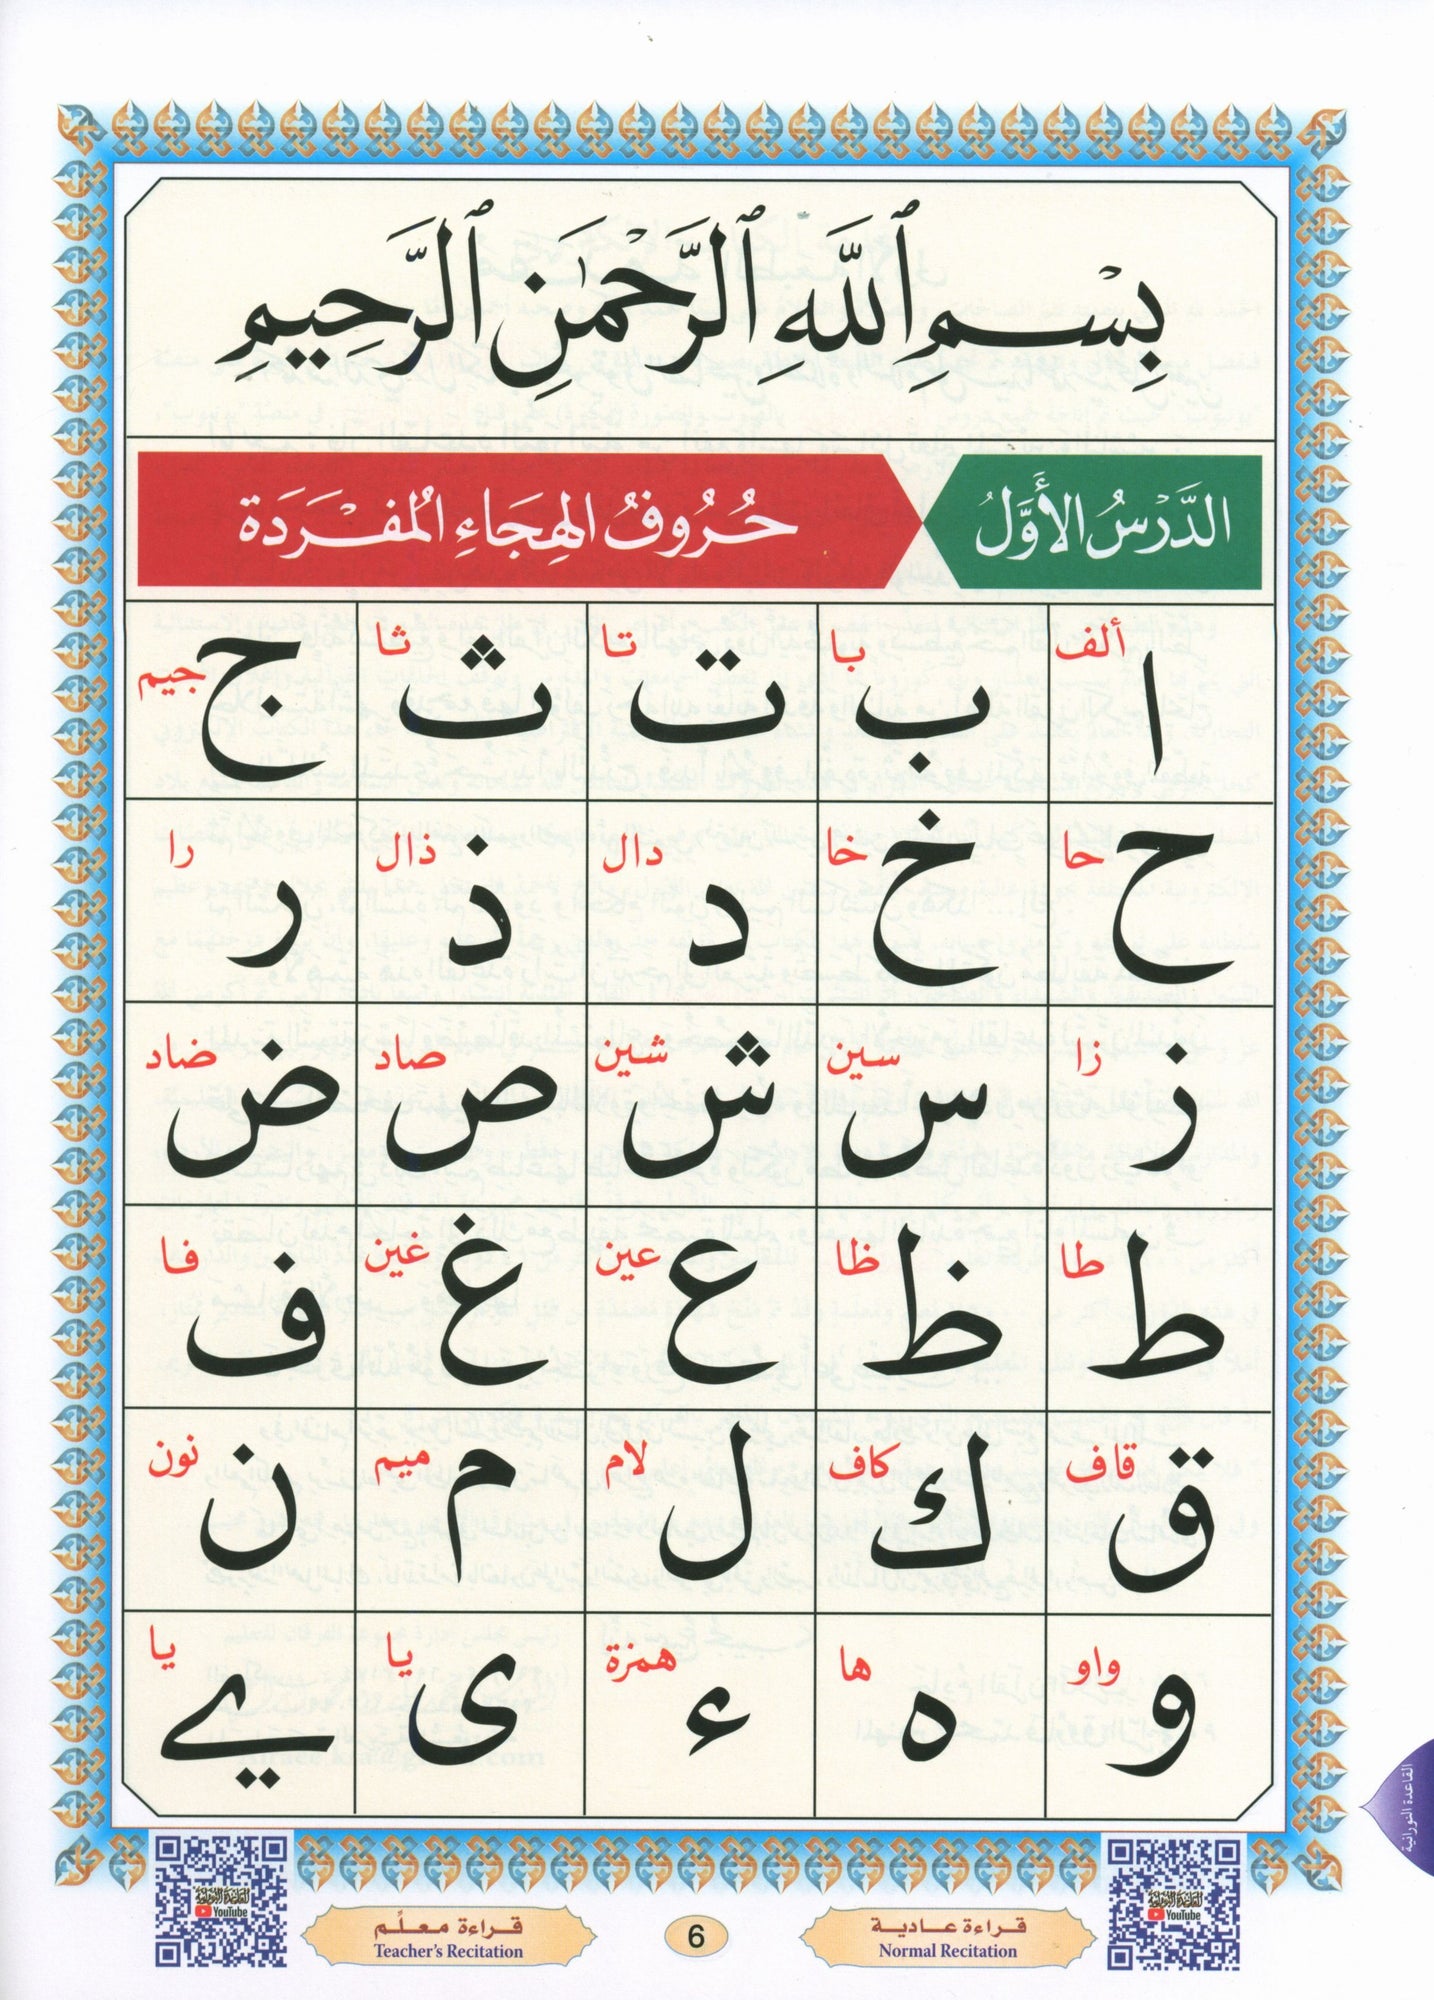 بِسْمِ ٱللَّهِ ٱلرَّحْمَٰنِ ٱلرَّحِيمِ
الدَّرْسُ الأَوَّلُ حُرُوفُ الهِجَاءِ المُفْرَدَة
ألف با تا ثا جيم
ا ب ت ث ج
حا خا دال ذال را
ح خ د ذ ر
زا سين شين صاد ضاد
ز س ش ص ض
طا ظا عين غين فا
ط ظ ع غ ف
قاف كاف لام ميم نون
ق ك ل م ن
واو ها همزة يا يا
و ه ء ى ے
القاعدة النورانية
القاعدة النورانية
YouTube
قراءة عادية
Normal Recitation
6
قراءة معلّم
Teacher's Recitation
القاعدة النورانية
YouTube